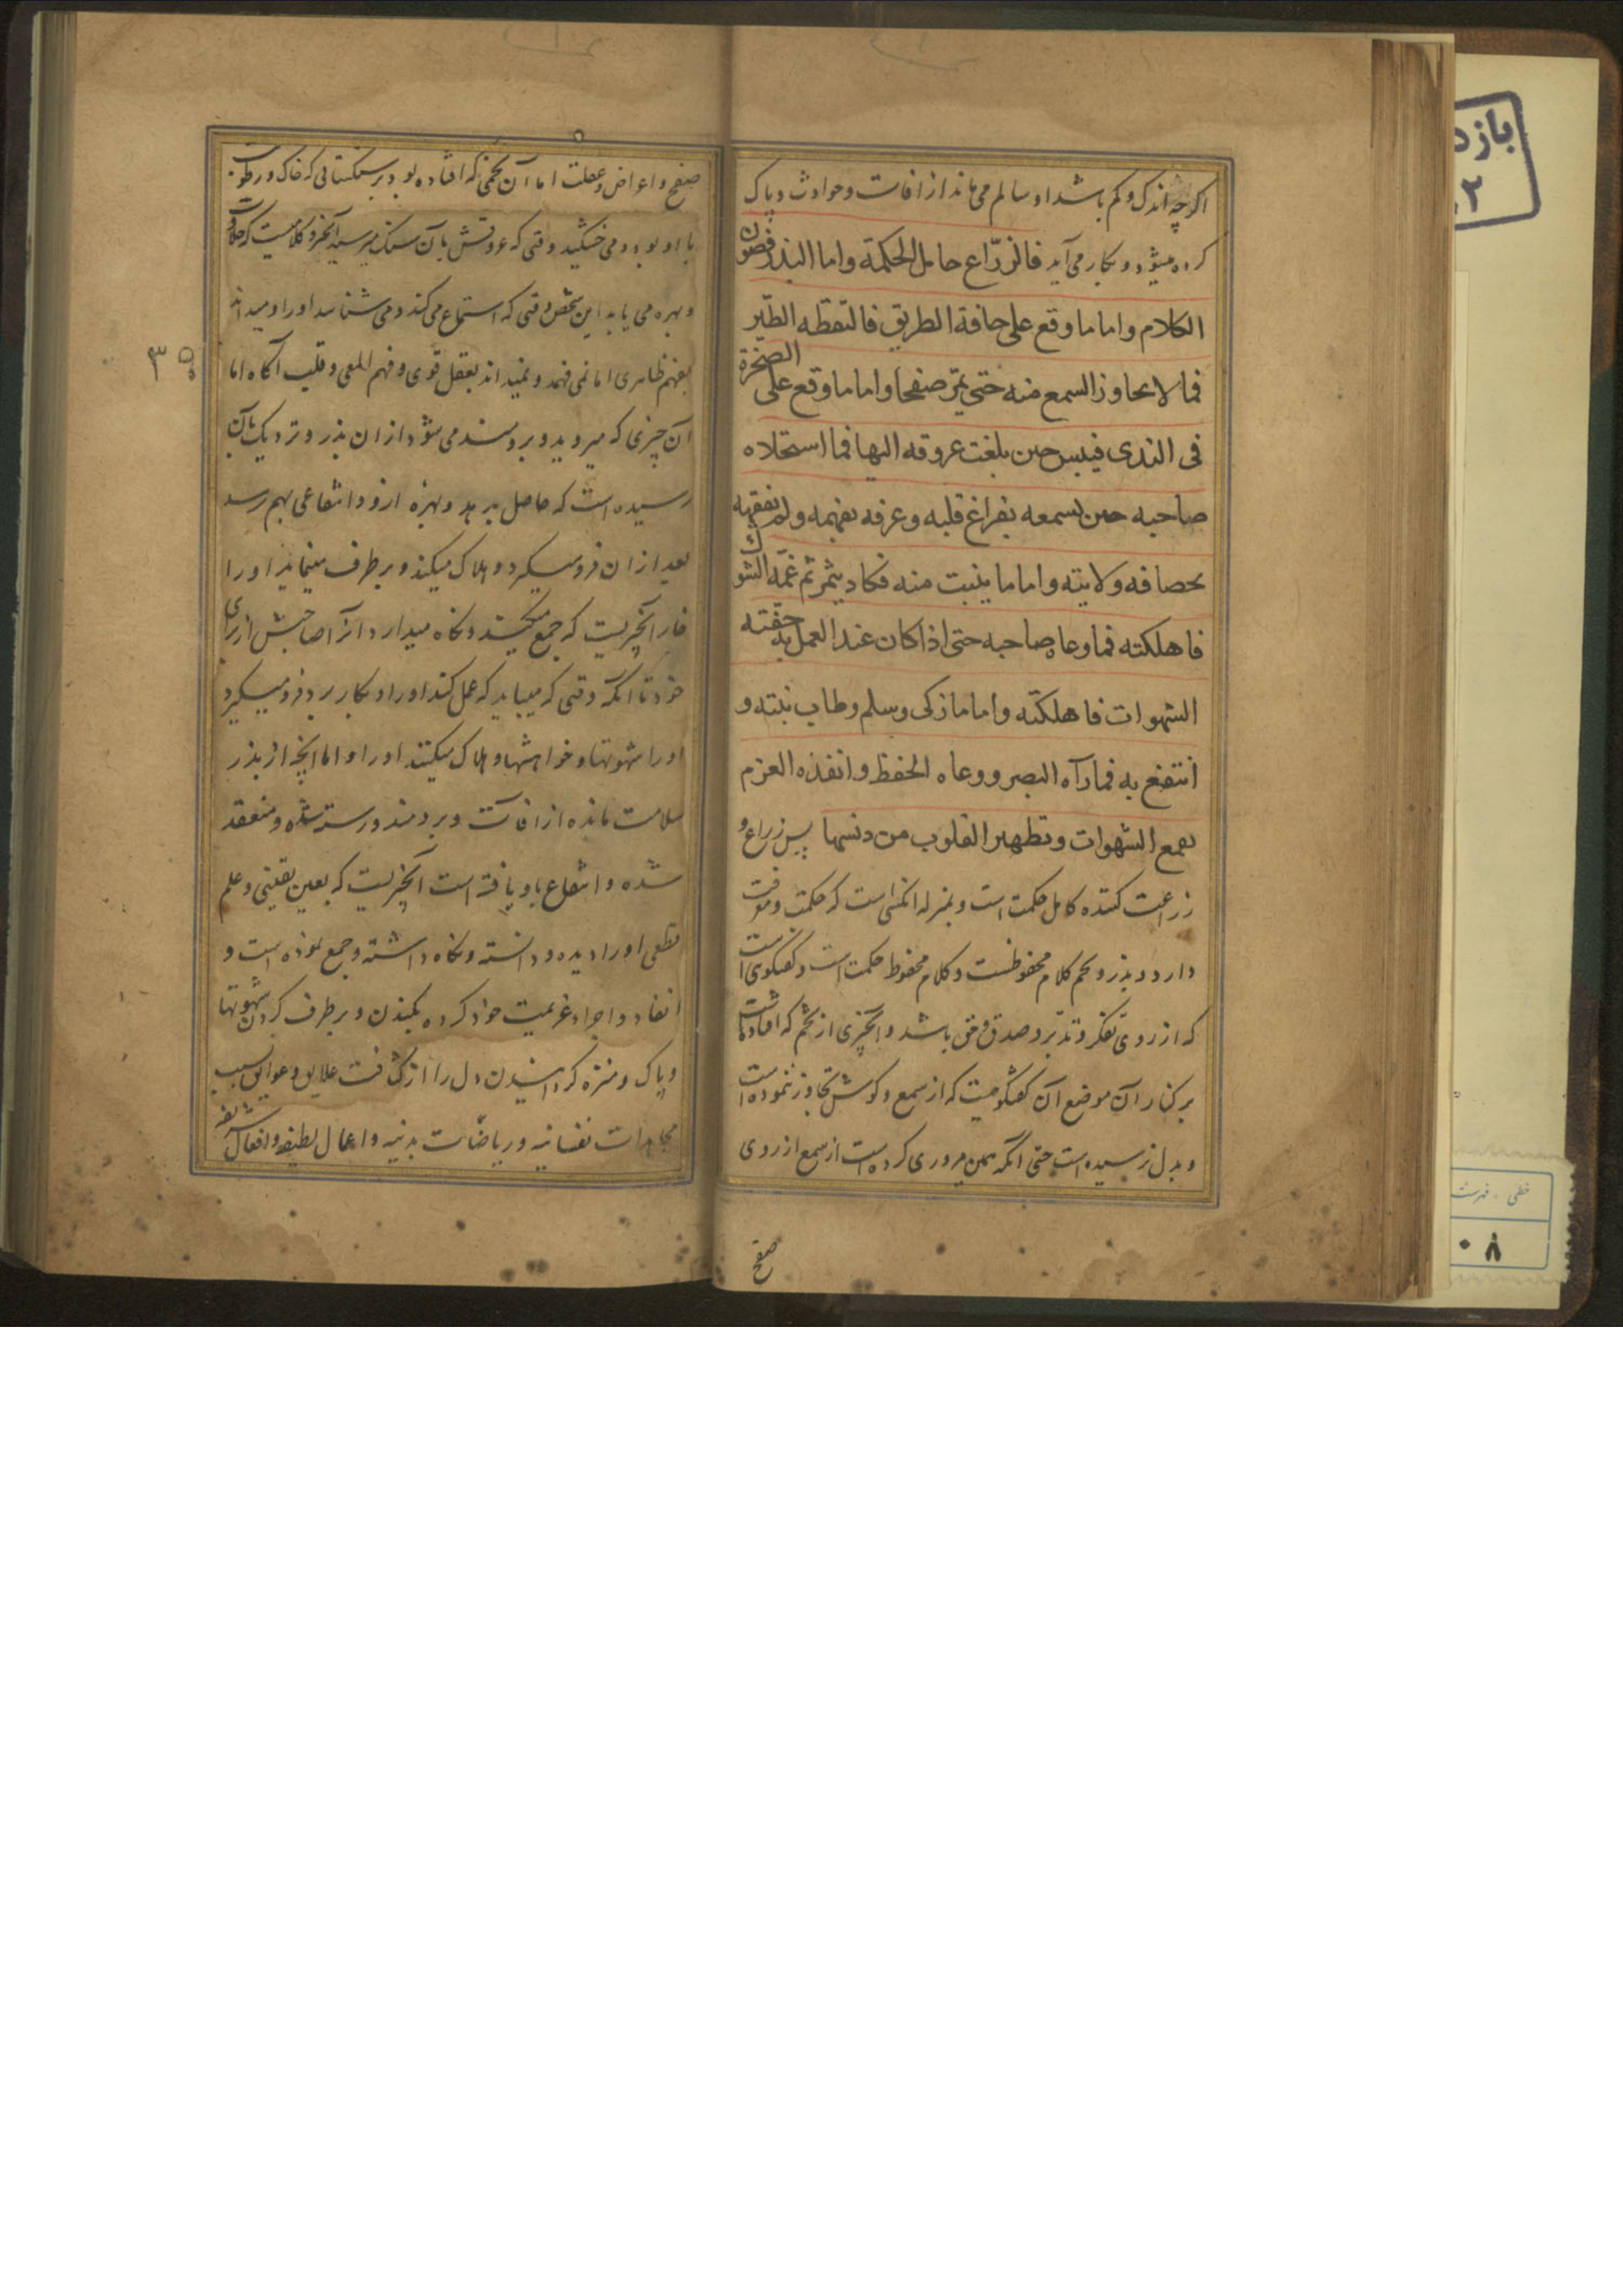 اکرچه اندک و کم باشد او سالم می ماند از افات و حوادث و پاک
کرده میشود و بکار می آید فالزرّاع حامل الحکمة واما البذر فصون
الکلام واما ما وقع علی حافة الطریق فالتقطه الطّیر
فما لا یجاوز السمع منه حتی یمرّ صفحا واما ما وقع علی الصخرة
فی الندی فیبس حین بلغت عروقه الیها فما استحلاه
صاحبه حین یسمعه بفراغ قلبه و عرفه بفهمه ولم یفقهه
بحصافه ولا بیته واما ما ینبت منه فکاد یثمر ثم غمّه الشوک
فاهلکته فما وعاه صاحبه حتی اذا کان عند العمل به حفّته
الشهوات فاهلکته واما ما زکی وسلم وطاب نبته و
انتفع به فما رآه البصر و وعاه الحفظ و انفذه العزم
بقمع الشهوات وتطهیر القلوب من دنسها پس زراع و
زراعت کننده کامل حکمت است و بمنزله انکسی است که حکمت و معرفت
دارد و بذر و تخم کلام محفوظست و کلام محفوظ حکمت است و کفتکوی است
که از روی تفکر و تدبّر و صدق و حق باشد و آنچیزی از تخم که افتاده
بر کنار آن موضع آن کفتکوییست که از سمع و کوش تجاوز ننموده است
و بدل نرسیده است حتی انکه همین مروری کرده است از سمع از روی
صفح
صفح و اعراض و غفلت اما آن تخمی که افتاده بود بر سنکستانی که خاک و رطوبت
با او بود و می خشکید وقتی که عروقش بآن سنک میرسید آنچیز کلامیست که حلاوت
و بهره می یابد این شخص وقتی که استماع می کند و می شناسد او را و میداند
بفهم ظاهری اما نمی فهمد و نمیداند بعقل قوی و فهم المعی و قلب آکاه اما
آن چیزی که میروید و برومند می شود از ان بذر و نزدیک بآن
رسیده است که حاصل بر دهد و بهره ازو و انتفاعی بهم رسد
بعد از ان فرو میکیرد و هلاک میکند و بر طرف مینماید او را
خار آنچیزیست که جمع میکند و نکاه میدارد آنرا صاحبش از برای
خود تا انکه وقتی که میباید که عمل کند او را و بکار برد فرو میکیرد
او را شهوتها و خواهشها و هلاک میکنند او را و اما انچه از بذر
سلامت مانده از افات و برومند و رسته شده و منعقد
شده و انتفاع باو یافته است آنچیزیست که بعین یقینی و علم
قطعی او را دیده و دانسته و نکاه داشته و جمع نموده است و
انفاد و اجراء عزیمت خود کرده بکندن و بر طرف کردن شهوتها
و پاک و منزه کردانیدن دل را از کثافت علایق و عوایق بسبب
مجاهدات نفسانیه و ریاضات بدنیه و اعمال لطیفه و افعال شریفه
بازد
۲
خطی . فهرست
۰ ۸